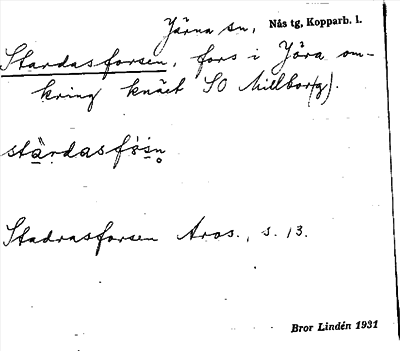 Järna sn, Nås tg, Kopparb. l.
Stardasforsen, fors i Jöra om-
kring knäet SO Millbor(g).
stà̱rdasfɷ̀s̱n̥
Stadrasforsen Aros., s. 13.
Bror Lindén 1931